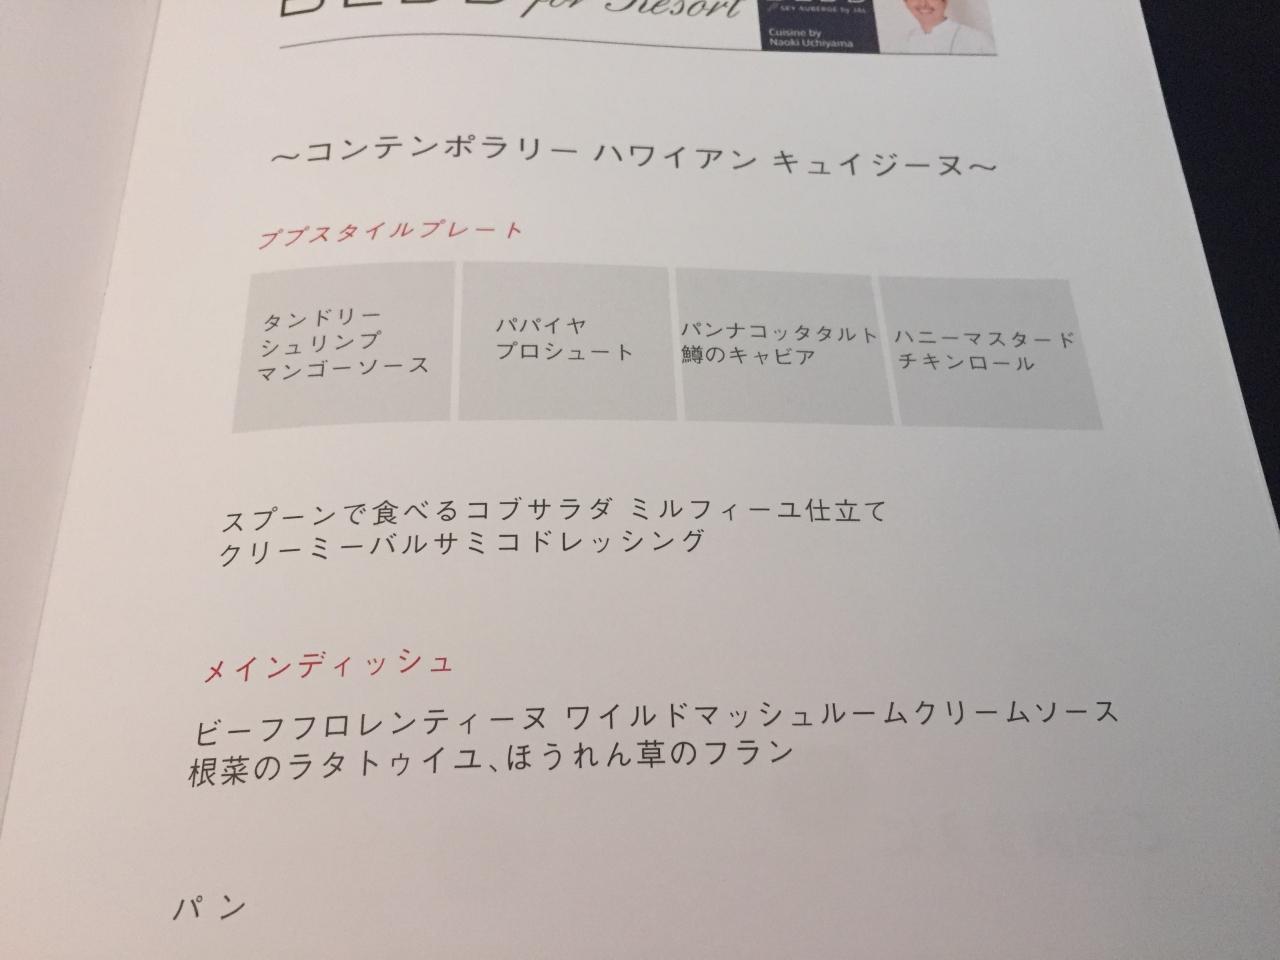 BEDD for Resort
SKY AUBERGE by JAL
Cuisine by
Naoki Uchiyama
～コンテンポラリー ハワイアン キュイジーヌ～
ププスタイルプレート
タンドリー
シュリンプ
マンゴーソース
パパイヤ
プロシュート
パンナコッタタルト
鱒のキャビア
ハニーマスタード
チキンロール
スプーンで食べるコブサラダ ミルフィーユ仕立て
クリーミーバルサミコドレッシング
メインディッシュ
ビーフフロレンティーヌ ワイルドマッシュルームクリームソース
根菜のラタトゥイユ、ほうれん草のフラン
パン